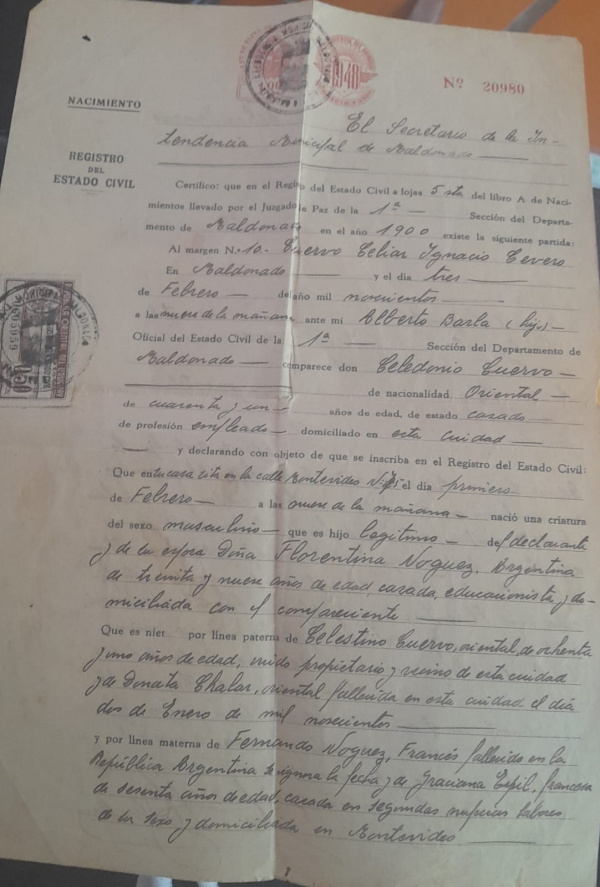 1948
Nº 20980
NACIMIENTO
REGISTRO
DEL
ESTADO CIVIL
El Secretario de la In-
tendencia Municipal de Maldonado
Certifico: que en el Registro del Estado Civil a fojas 5 vta del libro A de Naci-
mientos llevado por el Juzgado de Paz de la 1ª Sección del Departa-
mento de Maldonado en el año 1900 existe la siguiente partida:
Al margen N.o 10.- Cuervo Celiar Ignacio Cevero
En Maldonado y el día tres
de Febrero del año mil novecientos
a las nueve de la mañana ante mi Alberto Barla (hijo)
Oficial del Estado Civil de la 1ª Sección del Departamento de
Maldonado comparece don Celedonio Cuervo
de nacionalidad Oriental
de cuarenta y un años de edad, de estado casado
de profesión empleado domiciliado en esta ciudad
y declarando con objeto de que se inscriba en el Registro del Estado Civil:
Que en su casa sita en la calle Montevideo el día primero
de Febrero a las nueve de la mañana nació una criatura
del sexo masculino que es hijo legítimo del declarante
y de su esposa Doña Florentina Noguez, Argentina
de treinta y nueve años de edad, casada, educacionista y do-
miciliada con el compareciente
Que es niet por línea paterna de Celestino Cuervo, oriental, de ochenta
y uno años de edad, viudo propietario y vecino de esta ciudad
y de Donata Chalar, oriental fallecida en esta ciudad el día
dos de Enero de mil novecientos
y por línea materna de Fernando Noguez, Francés fallecido en la
República Argentina se ignora la fecha y de Graciana Espil, francesa
de sesenta años de edad, casada en segundas nupcias labores
de su sexo y domiciliada en Montevideo